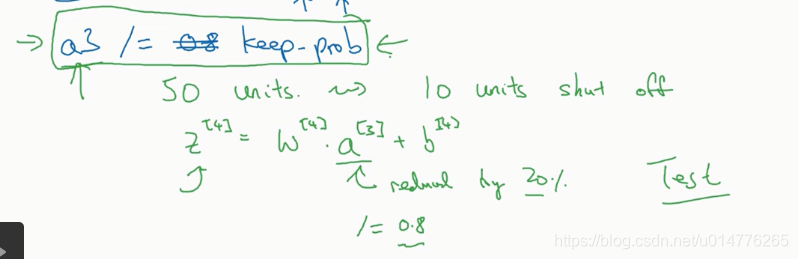 → a3 /= 0.8 keep-prob ←
50 units. ⇝ 10 units shut off
z^[4] = W^[4] · a^[3] + b^[4]
reduced by 20%. Test
/= 0.8
https://blog.csdn.net/u014776265